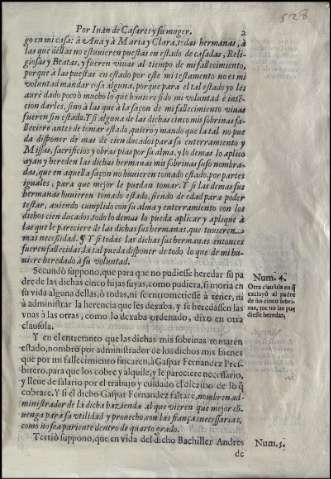 Por Iuan de Casares y su muger.
2
528
go en mi casa: à Ana y à Maria y Clara, todas hermanas, à
las que dellas no estuvieren puestas en estado de casadas, Reli-
giosas y Beatas, y fueren vivas al tiempo de mi fallecimiento,
porque à las puestas en estado por este mi testamento no es mi
voluntad mandar cosa alguna, porque para el tal estado yo les
aurè dado poco ò mucho lo que huviere sido mi voluntad è inten-
cion darles, sino à las que à la saçon de mi fallecimiento vivas
fueren sin estado. Y si alguna de las dichas cinco mis sobrinas fa-
lleciere antes de tomar estado, quiero y mando que la tal no pue
da disponer de mas de cien ducados para su enterramiento y
Missas, sacrificios y obras pias por su alma, y lo demas lo aplico
ayan y hereden las dichas hermanas mis sobrinas suso nombra-
das, que en aquella saçon no huvieren tomado estado, por partes
iguales, para que mejor le puedan tomar. Y si las demas sus
hermanas huvieren tomado estado, siendo de edad para poder
testar, aviendo cumplido con su alma y enterramiento con los
dichos cien ducados, todo lo demas lo pueda aplicar y aplique à
las que le pareciere de las dichas sus hermanas, que tuvieren
mas necessidad. ¶ Y si todas las dichas sus hermanas entonces
fueren fallecidas la tal pueda disponer de todo lo que de mi hu-
viere heredado à su voluntad.
Secundò suppono, que para que no pudiesse heredar su pa
dre de las dichas cinco hijas suyas, como pudiera, si moria en
su vida alguna dellas, ò todas, ni se entrometiesse à tener, ni
à administrar la herencia que les dexava, y se heredassen las
unas à las otras, como lo dexaba ordenado, dixo en otra
clausula.
Num. 4.
Otra clausula en q
excluyò al padre
de las cinco sobri-
nas, que no las pu-
diesse heredar.
Y en el entretanto que las dichas mis sobrinas tomaren
estado, nombro por administrador de los dichos mis bienes
que por mi fallecimiento fincaren, à Gaspar Fernandez Pres-
bitero, para que los cobre y alquile, y le pareciere necessario,
y lleve de salario por el trabajo y cuidado el diezmo de lo q̃
cobrare. Y si el dicho Gaspar Fernandez faltare, nombren ad-
ministrador de la dicha hazienda al que vieren que mejor cõ-
venga para su utilidad y provecho, con las franças necessarias,
como no sea pariente dentro de quarto grado.
Tertiò suppono, que en vida del dicho Bachiller Andres
Num. 5.
de